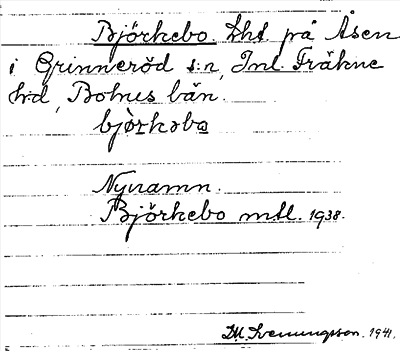 Björkebo. Lht på Åsen
i Grinneröd s:n, Inl. Fräkne
h:d, Bohus län.
bjö̀rkəbo
Nynamn.
Björkebo mtl. 1938.
Svenungsson. 1941.